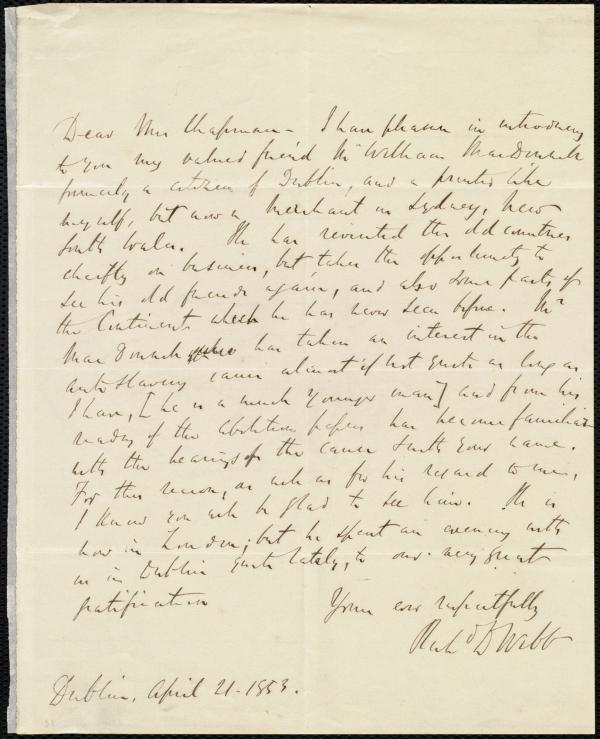 Dear Mrs Chapman - I have pleasure in introducing
to you my valued friend Mr William MacDonnell
formerly a citizen of Dublin, and a printer like
myself, but now a merchant in Sydney, New
South Wales. He has revisited the old countries
chiefly on business, but takes the opportunity to
see his old friends again, and also some parts of
the Continent which he has never seen before. Mr
MacDonnell has taken an interest in the
antislavery cause almost if not quite as long as
I have, [he is a much younger man] and from his
reading of the abolition papers has become familiar
with the bearings of the cause & with your name.
For this reason, as well as for his regard to me,
I know you will be glad to see him. He is
now in London; but he spent an evening with
us in Dublin quite lately, to our very great
gratification
Yours ever respectfully
Richd D Webb
Dublin, April 21 - 1853.